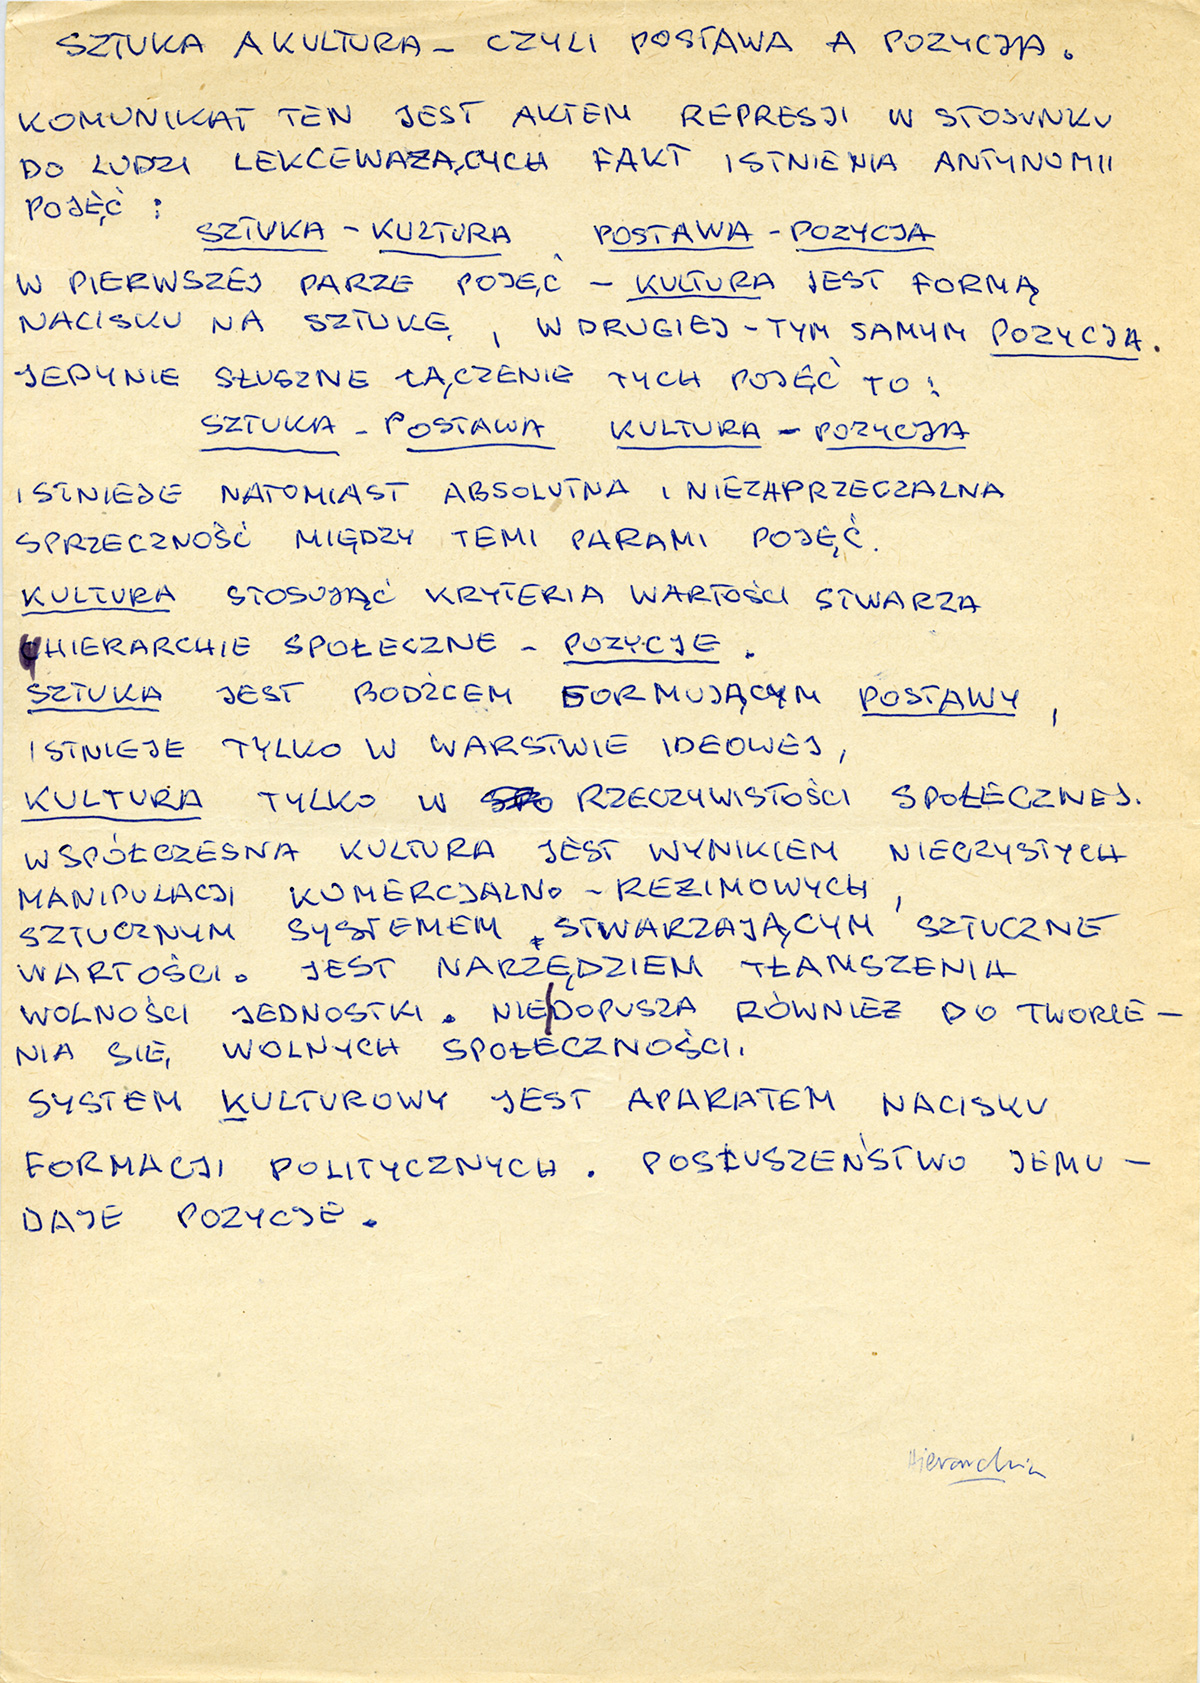 SZTUKA A KULTURA – CZYLI POSTAWA A POZYCJA.
KOMUNIKAT TEN JEST AKTEM REPRESJI W STOSUNKU
DO LUDZI LEKCEWAŻĄCYCH FAKT ISTNIENIA ANTYNOMII
POJĘĆ :
SZTUKA – KULTURA, POSTAWA – POZYCJA
W PIERWSZEJ PARZE POJĘĆ – KULTURA JEST FORMĄ
NACISKU NA SZTUKĘ, W DRUGIEJ – TYM SAMYM POZYCJA.
JEDYNIE SŁUSZNE ŁĄCZENIE TYCH POJĘĆ TO :
SZTUKA – POSTAWA KULTURA – POZYCJA
ISTNIEJE NATOMIAST ABSOLUTNA I NIEZAPRZECZALNA
SPRZECZNOŚĆ MIĘDZY TEMI PARAMI POJĘĆ.
KULTURA STOSUJĄĆ KRYTERIA WARTOŚCI STWARZA
HIERARCHIE SPOŁECZNE – POZYCJE.
SZTUKA JEST BODŹCEM FORMUJĄCYM POSTAWY,
ISTNIEJE TYLKO W WARSTWIE IDEOWEJ,
KULTURA TYLKO W RZECZYWISTOŚCI SPOŁECZNEJ.
WSPÓŁCZESNA KULTURA JEST WYNIKIEM NIECZYSTYCH
MANIPULACJI KOMERCJALNO – REŻIMOWYCH,
SZTUCZNYM SYSTEMEM STWARZAJĄCYM SZTUCZNE
WARTOŚCI. JEST NARZĘDZIEM TŁAMSZENIA
WOLNOŚCI JEDNOSTKI. NIE DOPUSZA RÓWNIEŻ DO TWORZE –
NIA SIĘ WOLNYCH SPOŁECZNOŚCI.
SYSTEM KULTUROWY JEST APARATEM NACISKU
FORMACJI POLITYCZNYCH. POSŁUSZEŃSTWO JEMU –
DAJE POZYCJĘ.
Hierarchia